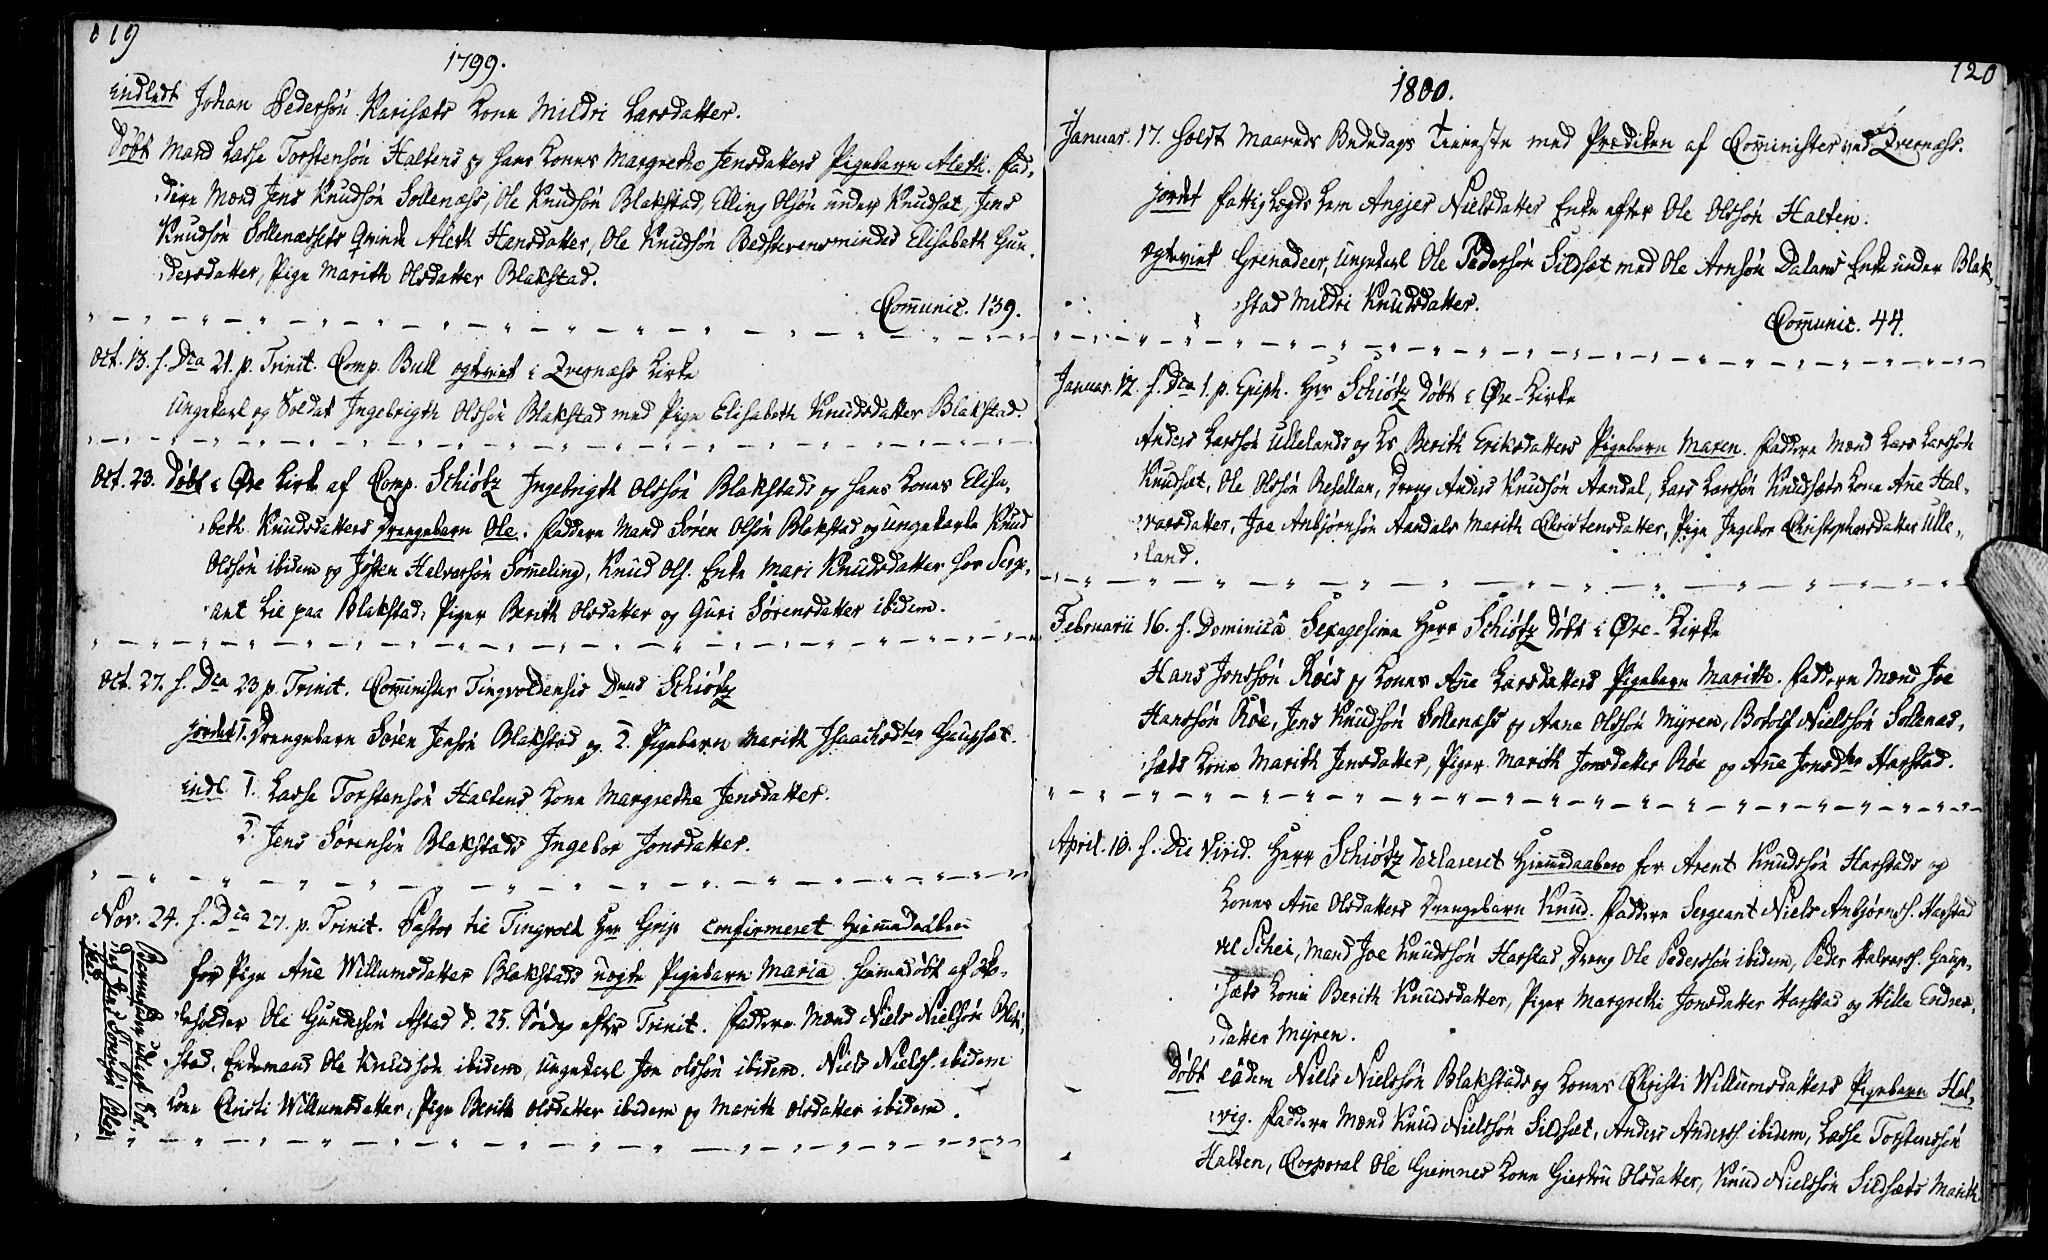 119
1799.
indledt Johan Pedersøn Karisæts Kone Mildri Larsdatter.
Døbt Mand Lasse Torstensøn Haltens og hans Kones Margrethe Jensdatters Pigebarn Aleth. Fad,
dere Mænd Jens Knudsøn Solknæss, Ole Knudsøn Blakstad, Elling Olsøn under Knudsæt, Jens
Knudsøn Solknæssets Qvinde Aleth Hansdatter, Ole Knudsøn Elisabeth Gun,
dersdatter, Pige Marith Olsdatter Blakstad.
Communic. 139.
Oct. 13. f. Dca 21. p. Trinit. Comp. Bull egteviet i Qvernæss Kirke
Ungekarl og Soldat Ingebrigth Olssøn Blakstad med Pige Elisabeth Knudsdatter Blakstad.
Oct. 23. Døbt i Øre Kirke af Comp. Schiøtz Ingebrigth Olssøn Blakstads og hans Kones Elisa,
beth Knudsdatters Drengebarn Ole. Faddere Mand Søren Olsøn Blakstad og Ungekarle Knud
Olssøn ibidem og Jøsten Halvorsøn Sømeling, Knud Ols. Enke Mari Knudsdatter hos Serge,
ant Lie paa Blakstad, Piger Berith Olsdatter og Guri Sørensdatter ibidem.
Oct. 27. f. Dca 23 p. Trinit. Comminister Tingvoldensis Dnus Schiøtz
jordet 1. Drengebarn Søren Jensøn Blakstad og 2. Pigebarn Marith Isaachsdter Gaupsæt.
indl 1. Lasse Torstensøn Haltens Kone Margrethe Jensdatter.
2. Jens Sørensøn Blakstads Ingebor Jonsdatter.
Nov. 24. f. Dca 27. p. Trinit. Pastor til Tingvold Hrr Grip confirmeret Hiemmedaaben
for Pige Ane Willumsdatter Blakstads uægte Pigebarn Maria hiemedøbt af
holder Ole Gundersøn Astad d. 25. Søndag efter Trinit. Faddere Mænd Niels Nielsøn Blak,
stad, Enkemand Ole Knudsøn ibidem, Ungekarl Jon Olssøn ibidem. Niels Nielss. ibidem
Kone Christi Willumsdatter, Pige Berith Olsdatter ibidem og Marith Olsdatter ibidem.
Barnefader udlagt Sol,
dat Jens Sørensøn Blak,
stad.
120
1800.
Januar. 17. holdt Maaneds Bededags Tieneste med Prediken af Comminister ved Qvernæss.
jordet Fattig Lægds Lem Angjer Nielsdatter Enke efter Ole Olssøn Halten.
egteviet Grenadeer, Ungekarl Ole Pedersøn Sildsæt med Ole Arnsøn Dalans Enke under Blak,
stad Mildri Knudsdatter.
Communic. 44.
Januar. 12. f. Dca 1. p. Epiph. Hrr Schiøtz døbt i Øre-Kirke
Anders Larssøn Ullelands og Ks Berith Eriksdatters Pigebarn Maren. Faddere Mænd Lars Larssøn
Knudsæt, Ole Olssøn Resellan, Dreng Anders Knudsøn Aandal, Lars Larssøn Knudsæts Kone Ane Hal,
vorsdatter, Joe Anbjørnsøn Aandals Marith Christensdatter, Pige Ingebor Christophersdatter Ulle,
land.
Februarii 16. f. Dominica Sexagesima Herr Schiøtz døbt i Øre-Kirke
Hans Jonssøn Røes og Kones Ane Larsdatters Pigebarn Marith. Faddere Mænd Joe
Hanssøn Røe, Jens Knudsøn Solknæss og Anne Olssøn Myren, Botolf Nielssøn Solknæs,
sæts Kone Marith Jensdatter, Piger Marith Jonsdatter Røe og Ane Jonsdter Harstad.
April. 10. f. Die Virid. Herr Schiøtz declareret Hiemmedaaben for Arent Knudssøn Harstads og
Kones Ane Olsdatters Drengebarn Knud. Faddere Sergeant Niels Anbjørnss. Harstad
vel Schei, Mand Joe Knudssøn Harstad, Dreng Ole Pederssøn ibidem, Peder Halvorss. Gaup,
sæts Kone Berith Knudsdatter, Piger Margrethe Jonsdatter Harstad og Hille Endres,
datter Myren.
Døbt eadem Niels Nielssøn Blakstads og Kones Christi Willumsdatters Pigebarn Hal,
vig. Faddere Mænd Knud Nielssøn Sildsæt, Anders Anderss. ibidem, Lasse Torstenssøn
Halten, Corporal Ole Giemnes Kone Giertru Olsdatter, Knud Nielssøn Sildsæts Marith